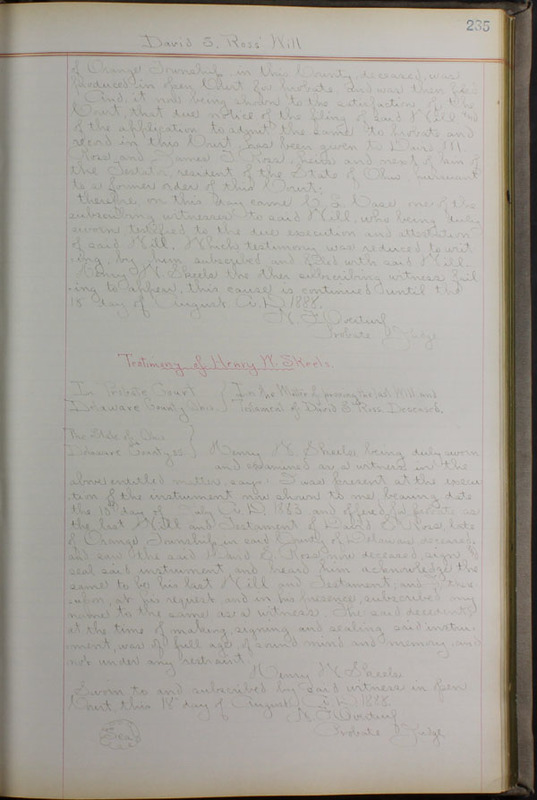 235
David S. Ross' Will
of Orange Township, in this County, deceased, was
produced in open Court for probate, and was then filed
And, it now being shown to the satisfaction of the
Court, that due notice of the filing of said Will and
of the application to admit the same to probate and
record in this Court has been given to M.
Rose and James Rose, heirs and next of kin of
the Testator, resident of the State of Ohio, pursuant
to a former order of this Court;
therefore, on this day came one of the
subscribing witnesses to said Will, who being duly
sworn testified to the due execution and attestation
of said Will, Which testimony was reduced to writ
ing, by him subscribed and filed with said Will.
Henry W. Skeels the other subscribing witness fail
ing to appear, this cause is continued until the
18 day of August A.D. 1888.
Probate Judge
Testimony of Henry W. Skeels.
In Probate Court
Delaware County Ohio.
In the Matter of proving the last Will and
Testament of David S. Ross Deceased.
The State of Ohio
Delaware County ss
Henry W. Skeels being duly sworn
and examined as a witness in the
above entitled matter, says: I was present at the execu
tion of the instrument now shown to me bearing date
the 13th day of A.D. 1883 and offered for probate as
the last Will and Testament of David S. Ross, late
of Orange Township in said County of Delaware deceased,
and saw the said David S. Ross, now deceased, sign &
seal said instrument, and heard him acknowledge the
same to be his last Will and Testament, and I there
upon, at his request and in his presence, subscribed my
name to the same as a witness. The said decedent
at the time of making, signing and sealing, said instru-
ment, was of full age, of sound mind and memory, and
not under any restraint
Henry W. Skeels
Sworn to and subscribed by said witness in open
Court, this 18 day of August A.D. 1888.
Seal
Probate Judge